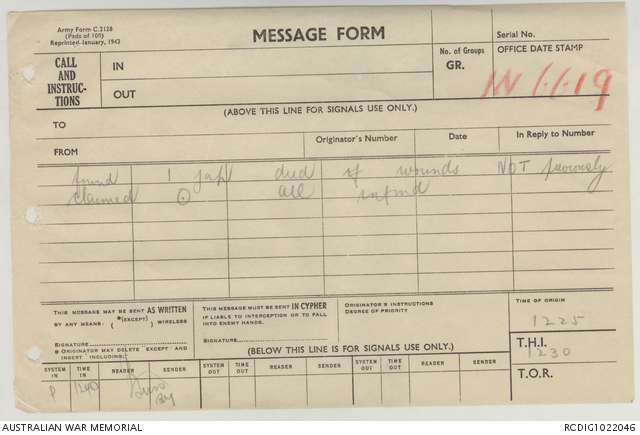 Army Form C.2128
(Pads of 100)
Reprinted January, 1943
MESSAGE FORM
Serial No.
CALL
AND
INSTRUC-
TIONS
IN
OUT
No. of Groups
GR.
OFFICE DATE STAMP
IN
(ABOVE THIS LINE FOR SIGNALS USE ONLY.)
TO
FROM
Originator's Number
Date
In Reply to Number
found 1 Jap died of wounds NOT previously
claimed ⊙ all infmd
THIS MESSAGE MAY BE SENT AS WRITTEN
BY ANY MEANS. { *(EXCEPT) } WIRELESS
SIGNATURE
* ORIGINATOR MAY DELETE EXCEPT AND
INSERT INCLUDING
THIS MESSAGE MUST BE SENT IN CYPHER
IF LIABLE TO INTERCEPTION OR TO FALL
INTO ENEMY HANDS.
SIGNATURE
ORIGINATOR'S INSTRUCTIONS
DEGREE OF PRIORITY
TIME OF ORIGIN
1225
(BELOW THIS LINE IS FOR SIGNALS USE ONLY.)
T.H.I.
1230
T.O.R.
SYSTEM IN TIME IN READER SENDER SYSTEM OUT TIME OUT READER SENDER SYSTEM OUT TIME OUT READER SENDER
P 1240
AUSTRALIAN WAR MEMORIAL
RCDIG1022046